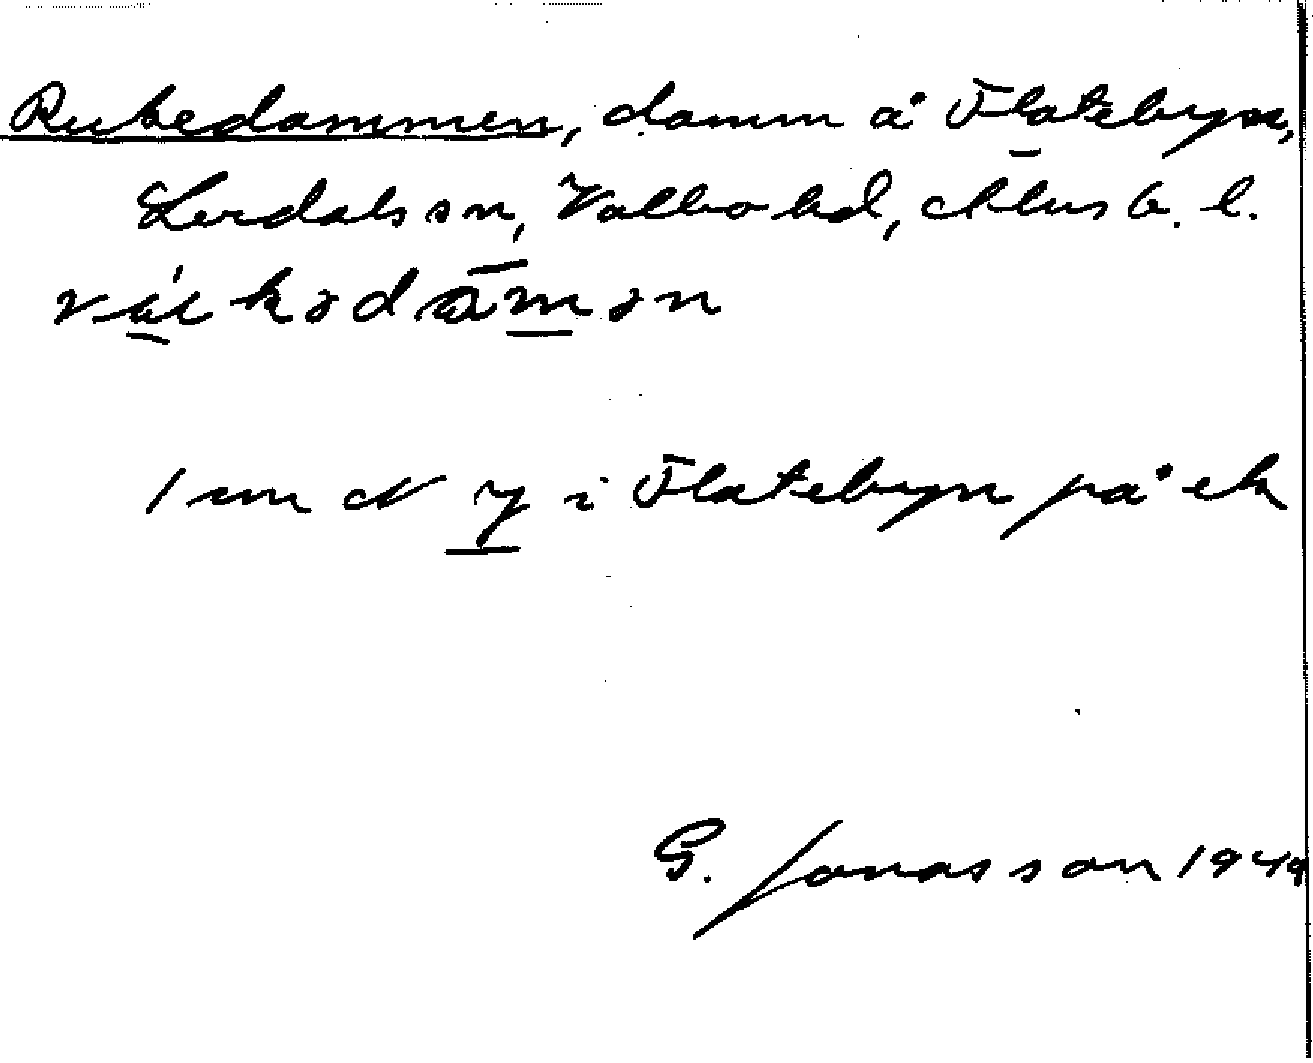 Rukedammen, damm å Flatebyn,
Lerdals sn, Valbo hd, Älvsb. l.
1 cm N y i Flatebyn på ek
G. Jonasson 1949